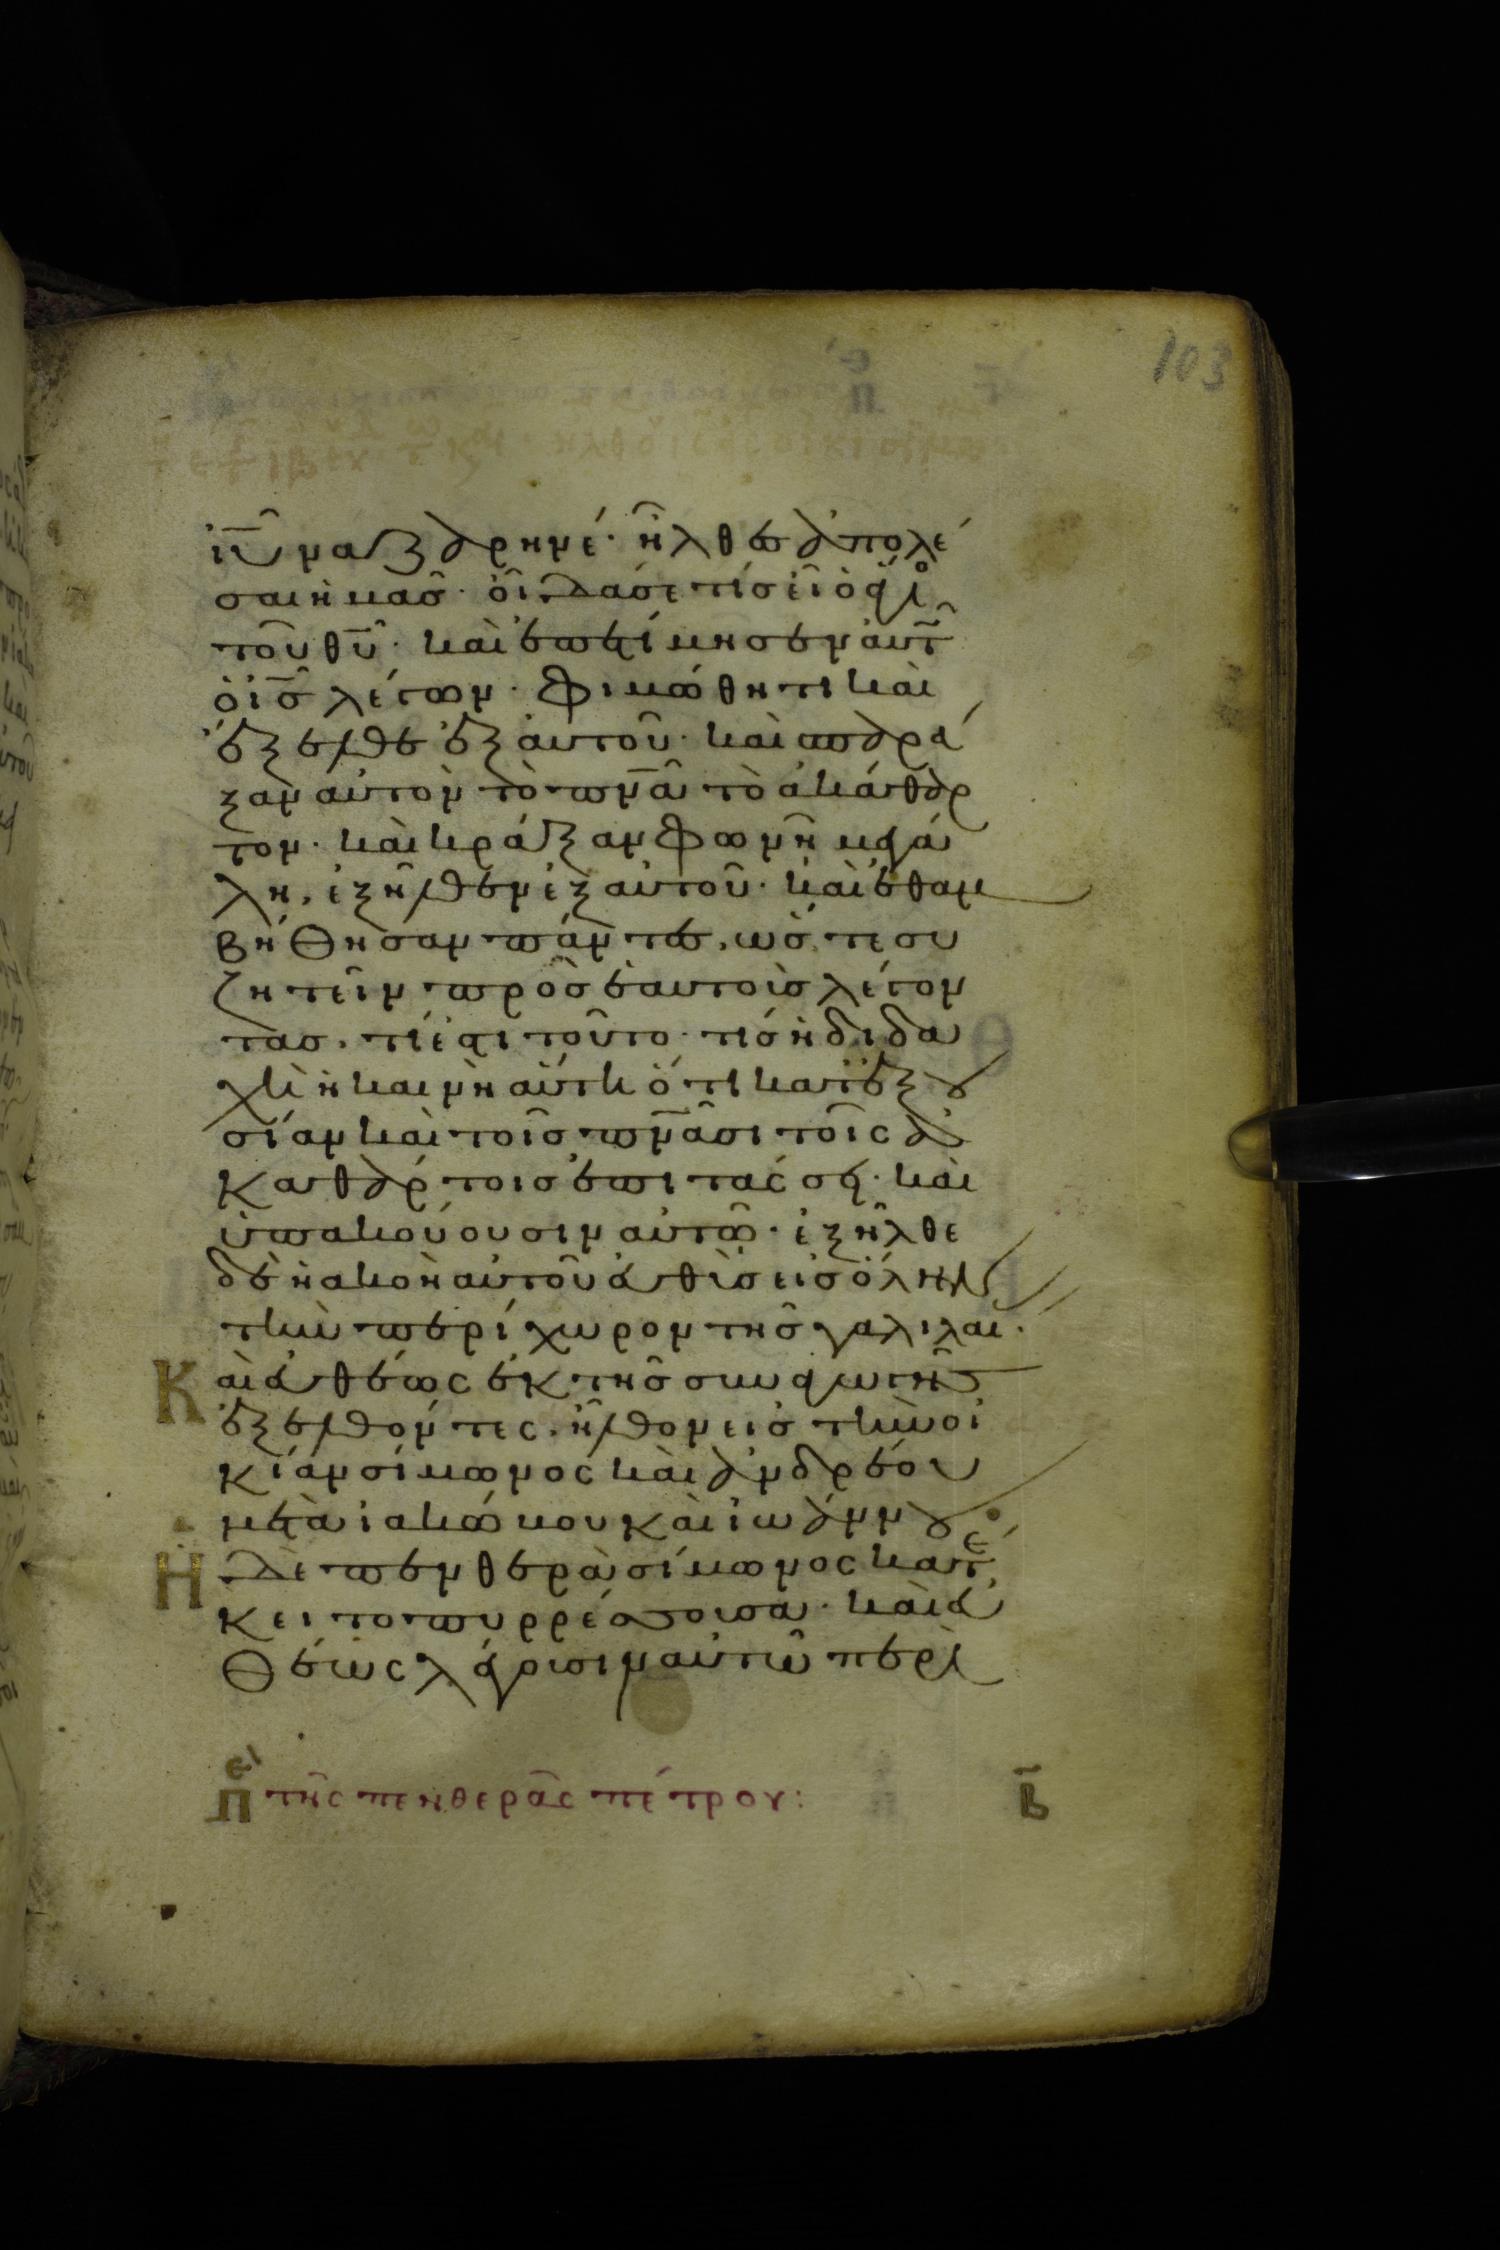 103
ιῦ ναζαρηνέ· ἦλθες ἀπολέ
σαι ἡμᾶσ· οἶδά σε τίσ εἶ ὁ ἅγιο
τοῦ θῦ· καὶ ἐπετίμησεν αὐτ
ὁ ισ λέγων· φιμώθητι καὶ
ἔξελθε ἐξ αὐτοῦ· καὶ σπαρά
ξαν αὐτὸν τὸ πνᾶ τὸ ἀκάθαρ
τον· καὶ κράξαν φωνῆ μεγά
λη, ἐξῆλθεν ἐξ αὐτοῦ· καὶ ἐθαμ
βήθησαν πάντες, ὥστε συ
ζητεῖν πρὸσ ἑαυτοὺσ λέγον
τασ· τί ἐστι τοῦτο· τίσ ἡ διδα
χὴ ἡ καινὴ αὕτη ὅτι κατ ἐξου
σίαν καὶ τοῖσ πνᾶσι τοῖς ἀ
καθάρτοισ ἐπιτάςσει· καὶ
ὑπακούουσιν αὐτῶ· ἐξῆλθε
δὲ ἡ ἀκοὴ αὐτοῦ εὐθὺσ εἰσ ὅλην
τὴν περίχωρον τῆσ γαλιλαί·
Καὶ εὐθέως ἐκ τῆσ συναγωγῆσ
ἐξελθόντες, ἦλθον εἰσ τὴν οἰ
κίαν σίμωνος καὶ ἀνδρέου
μετὰ ἰακώβου καὶ ἰωάννου
Ἡ δὲ πενθερὰ σίμωνος κατέ
κειτο πυρρέσσουσα· καὶ εὐ
θέως λέγουσιν αὐτῶ περὶ
πει τῆς πενθερᾶς πέτρου:
β